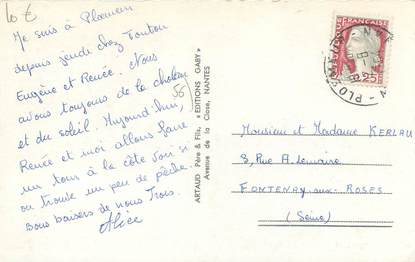 10 €
Je suis à Ploemeur
depuis jeudi chez Tonton
Eugène et Renée. Nous
avons toujours de la chaleur
et du soleil. Aujourd'hui,
Renée et moi allons faire
un tour à la côte voir si
on trouve un peu de pêche.
Bons baisers de nous Trois.
Alice
56
ARTAUD Père & Fils, "EDITIONS GABY"
Avenue de la Close, NANTES
0,25
Monsieur et Madame KERLAU
3, Rue A. Lemaire
FONTENAY-aux-ROSES
(Seine)